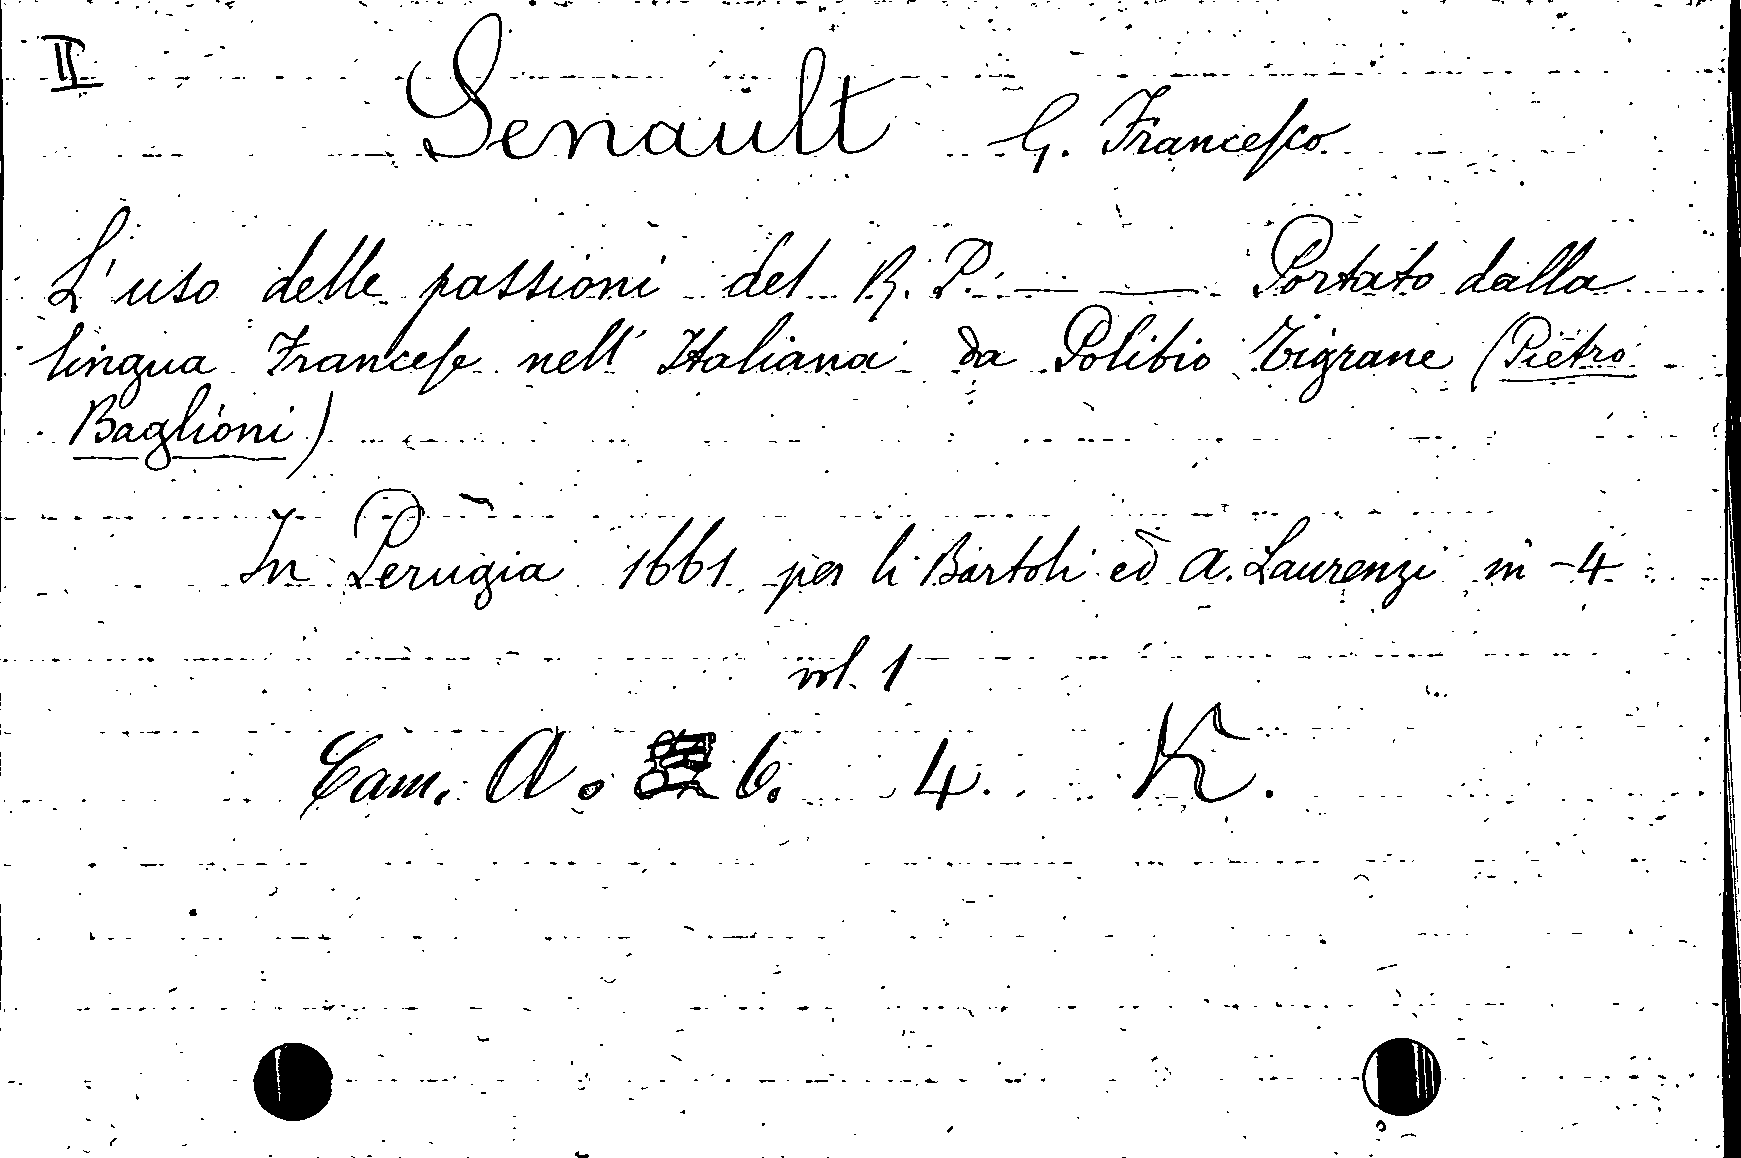 II
Senault G. Franceſco
L'uso delle passioni del R. P. — — Portato dalla
lingua Franceſe nell' Italiana da Polibio Zigrane (Pietro
Baglioni)
In Perugia 1661 per li Bartoli ed A. Laurenzi in-4
vol. 1
Cam. A. 6. 4. K.